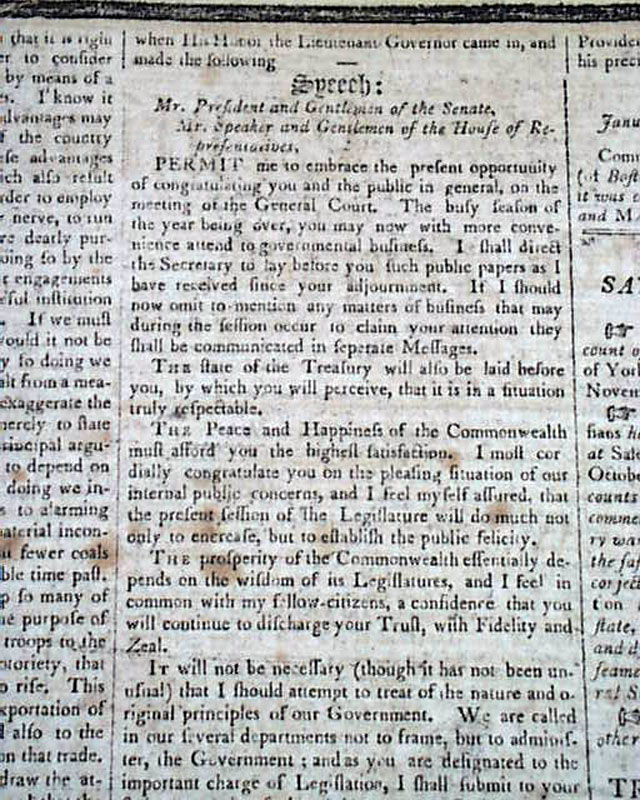 that it is righ
er to conſider
by means of a
es. I know it
advantages may
f the country
eſe advantages
ich alſo reſult
rder to employ
r nerve, to run
re dearly pur-
oing ſo by the
t engagements
eful inſtitution
. If we muſt
would it not be
y ſo doing we
alt from a mea-
exaggerate the
merely to ſtate
rincipal argu-
to depend on
doing we in-
s to alarming
aterial incon-
fewer coals
ble time paſt.
p ſo many of
he purpoſe of
troops to the
otoriety, that
o riſe. This
xportation of
d alſo to the
on that trade.
draw the at-
when His Honor the Lieutenant Governor came in, and
made the following
Speech:
Mr. Preſident and Gentlemen of the Senate,
Mr. Speaker and Gentlemen of the Houſe of Re-
preſentatives,
PERMIT me to embrace the preſent opportunity
of congratulating you and the public in general, on the
meeting of the General Court. The buſy ſeaſon of
the year being over, you may now with more conve-
nience attend to governmental buſineſs. I ſhall direct
the Secretary to lay before you ſuch public papers as I
have received ſince your adjournment. If I ſhould
now omit to mention any matters of buſineſs that may
during the ſeſſion occur to claim your attention they
ſhall be communicated in ſeperate Meſſages.
THE ſtate of the Treaſury will alſo be laid before
you, by which you will perceive, that it is in a ſituation
truly reſpectable.
THE Peace and Happineſs of the Commonwealth
muſt afford you the higheſt ſatisfaction. I moſt cor
dially congratulate you on the pleaſing ſituation of our
internal public concerns, and I feel myſelf aſſured, that
the preſent ſeſſion of the Legiſlature will do much not
only to encreaſe, but to eſtabliſh the public felicity.
THE proſperity of the Commonwealth eſſentially de-
pends on the wiſdom of its Legiſlatures, and I feel in
common with my fellow-citizens, a confidence that you
will continue to diſcharge your Truſt, with Fidelity and
Zeal.
IT will not be neceſſary (though it has not been un-
uſual) that I ſhould attempt to treat of the nature and o-
riginal principles of our Government. We are called
in our ſeveral departments not to frame, but to adminiſ-
ter, the Government; and as you are deſignated to the
important charge of Legiſlation, I ſhall ſubmit to your
Provide
his prec
Janu
Com
(of Boſt
it was t
and M
SA
count o
of York
Novem
ſians h
at Sale
Octob
counts
comme
ry wa
the ſa
correct
t on
ſtate,
and d
ſeame
ral S
other